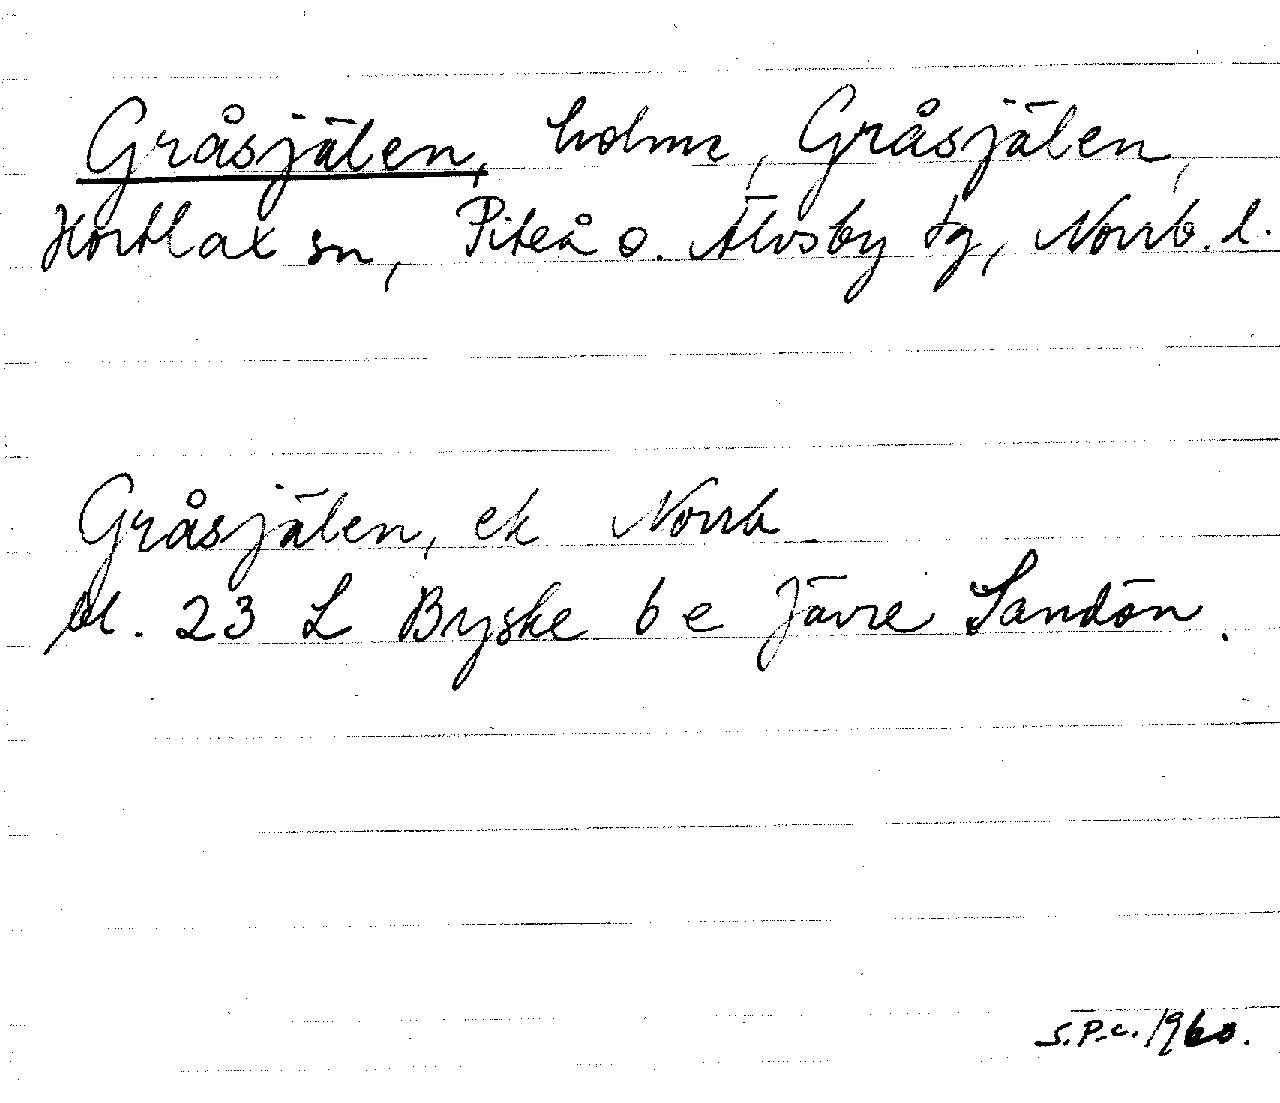 Gråsjälen, holme, Gråsjälen,
Hortlax sn, Piteå o. Älvsby tg, Norrb. l.
Gråsjälen, ek Norrb
bl. 23 L Byske 6 e Jävre Sandön.
S.P-c. 1960.